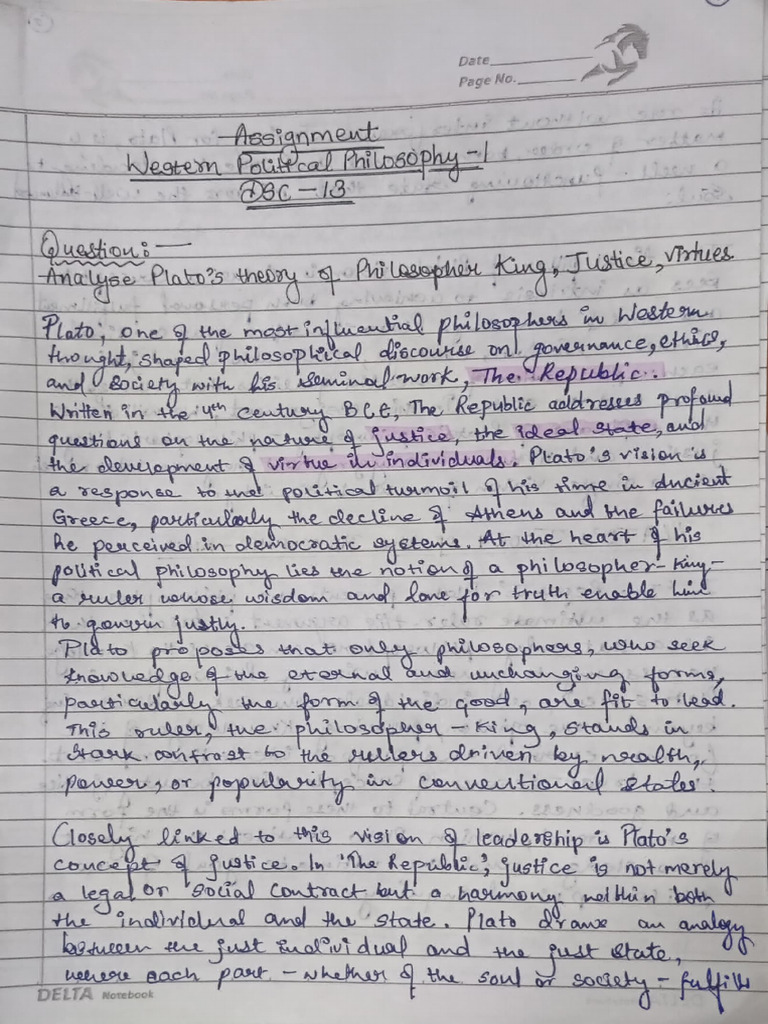 Date
Page No.
Assignment
Western Political Philosophy-1
DSC-13
Question:-
Analyse Plato's theory of Philosopher King, Justice, virtues
Plato, one of the most influential philosophers in Western
thought, shaped philosophical discourse on governance, ethics,
and society with his seminal work, The Republic.
Written in the 4th century BCE, The Republic addresses profound
questions on the nature of justice, the ideal state, and
the development of virtue in individuals. Plato's vision is
a response to the political turmoil of his time in Ancient
Greece, particularly the decline of Athens and the failures
he perceived in democratic systems. At the heart of his
political philosophy lies the notion of a philosopher-king-
a ruler whose wisdom and love for truth enable him
to govern justly.
Plato proposes that only philosophers, who seek
knowledge of the eternal and unchanging forms,
particularly the form of the good, are fit to lead.
This ruler, the philosopher-King, stands in
stark contrast to the rulers driven by wealth,
power, or popularity in conventional states.
Closely linked to this vision of leadership is Plato's
concept of justice. In 'The Republic', justice is not merely
a legal or social contract but a harmony within both
the individual and the state. Plato draws an analogy
between the just individual and the just state,
where each part - whether of the soul or society - fulfills
DELTA Notebook